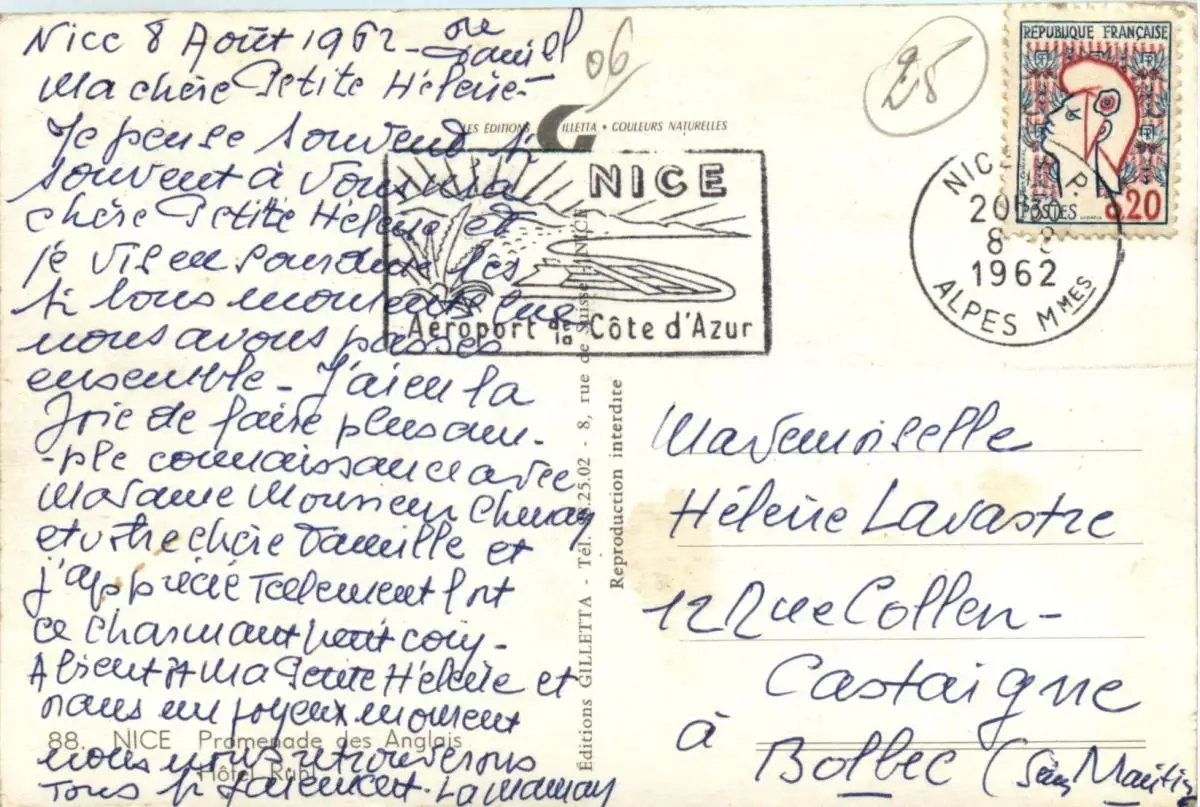 Nice 8 Août 1962 -
Daniel
Ma chère Petite Hélène -
Je pense souvent si
souvent à Vous ma
chère Petite Hélène et
je vis en les
si bons moments que
nous avons passés
ensemble - J'ai eu la
joie de faire plus am-
-ple connaissance avec
Madame Monsieur
et votre chère famille et
j'apprécie tellement fort
ce charmant petit coin -
A bientôt ma Petite Hélène et
dans un joyeux moment
nous nous retrouverons
tous si gaiement. La mamay
06
25
LES ÉDITIONS GILLETTA • COULEURS NATURELLES
NICE
Aéroport de la Côte d'Azur
RÉPUBLIQUE FRANÇAISE
POSTES
0.20
NICE R.P.
20H30
8-8
1962
ALPES MMES
Éditions GILLETTA - Tél. 8.25.02 - 8, rue de Suisse - NICE
Reproduction interdite
Mademoiselle
Hélène Lavastre
12 Rue Collen-
Castaigne
à Bolbec (Sein Maritime
88. NICE Promenade des Anglais
Hôtel Ruhl